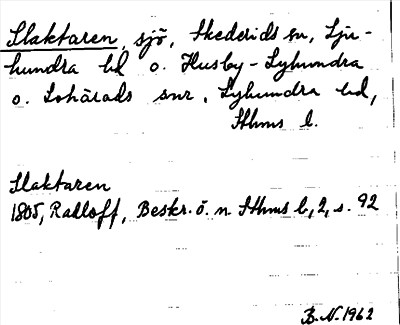 Slaktaren, sjö, Skederids sn, Sju-
hundra hd o. Husby-Lyhundra
o. Lohärads snr, Lyhundra hd,
Sthms l.
Slaktaren
1805, Radloff, Beskr. ö. n. Sthms l, 2, s. 92
B. N. 1962